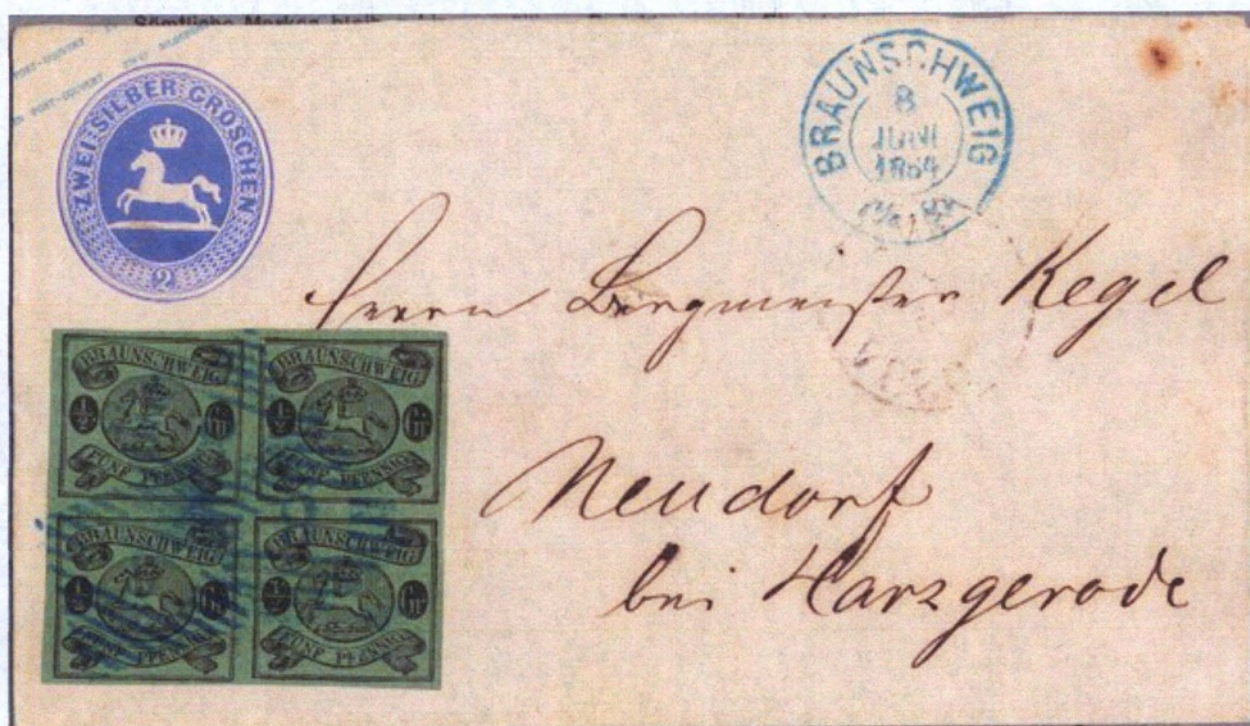 Sämtliche Marken
POST-COUVERT
POST-COUVERT ZWEI SILBERGR
ZWEI SILBER GROSCHEN
2
BRAUNSCHWEIG
8
JUNI
1864
Herrn Bergmeister Kegel
Neudorf
bei Harzgerode
BRAUNSCHWEIG
1/2 Gr
FÜNF PFENNIG
BRAUNSCHWEIG
1/2 Gr
FÜNF PFENNIG
BRAUNSCHWEIG
1/2 Gr
FÜNF PFENNIG
BRAUNSCHWEIG
1/2 Gr
FÜNF PFENNIG